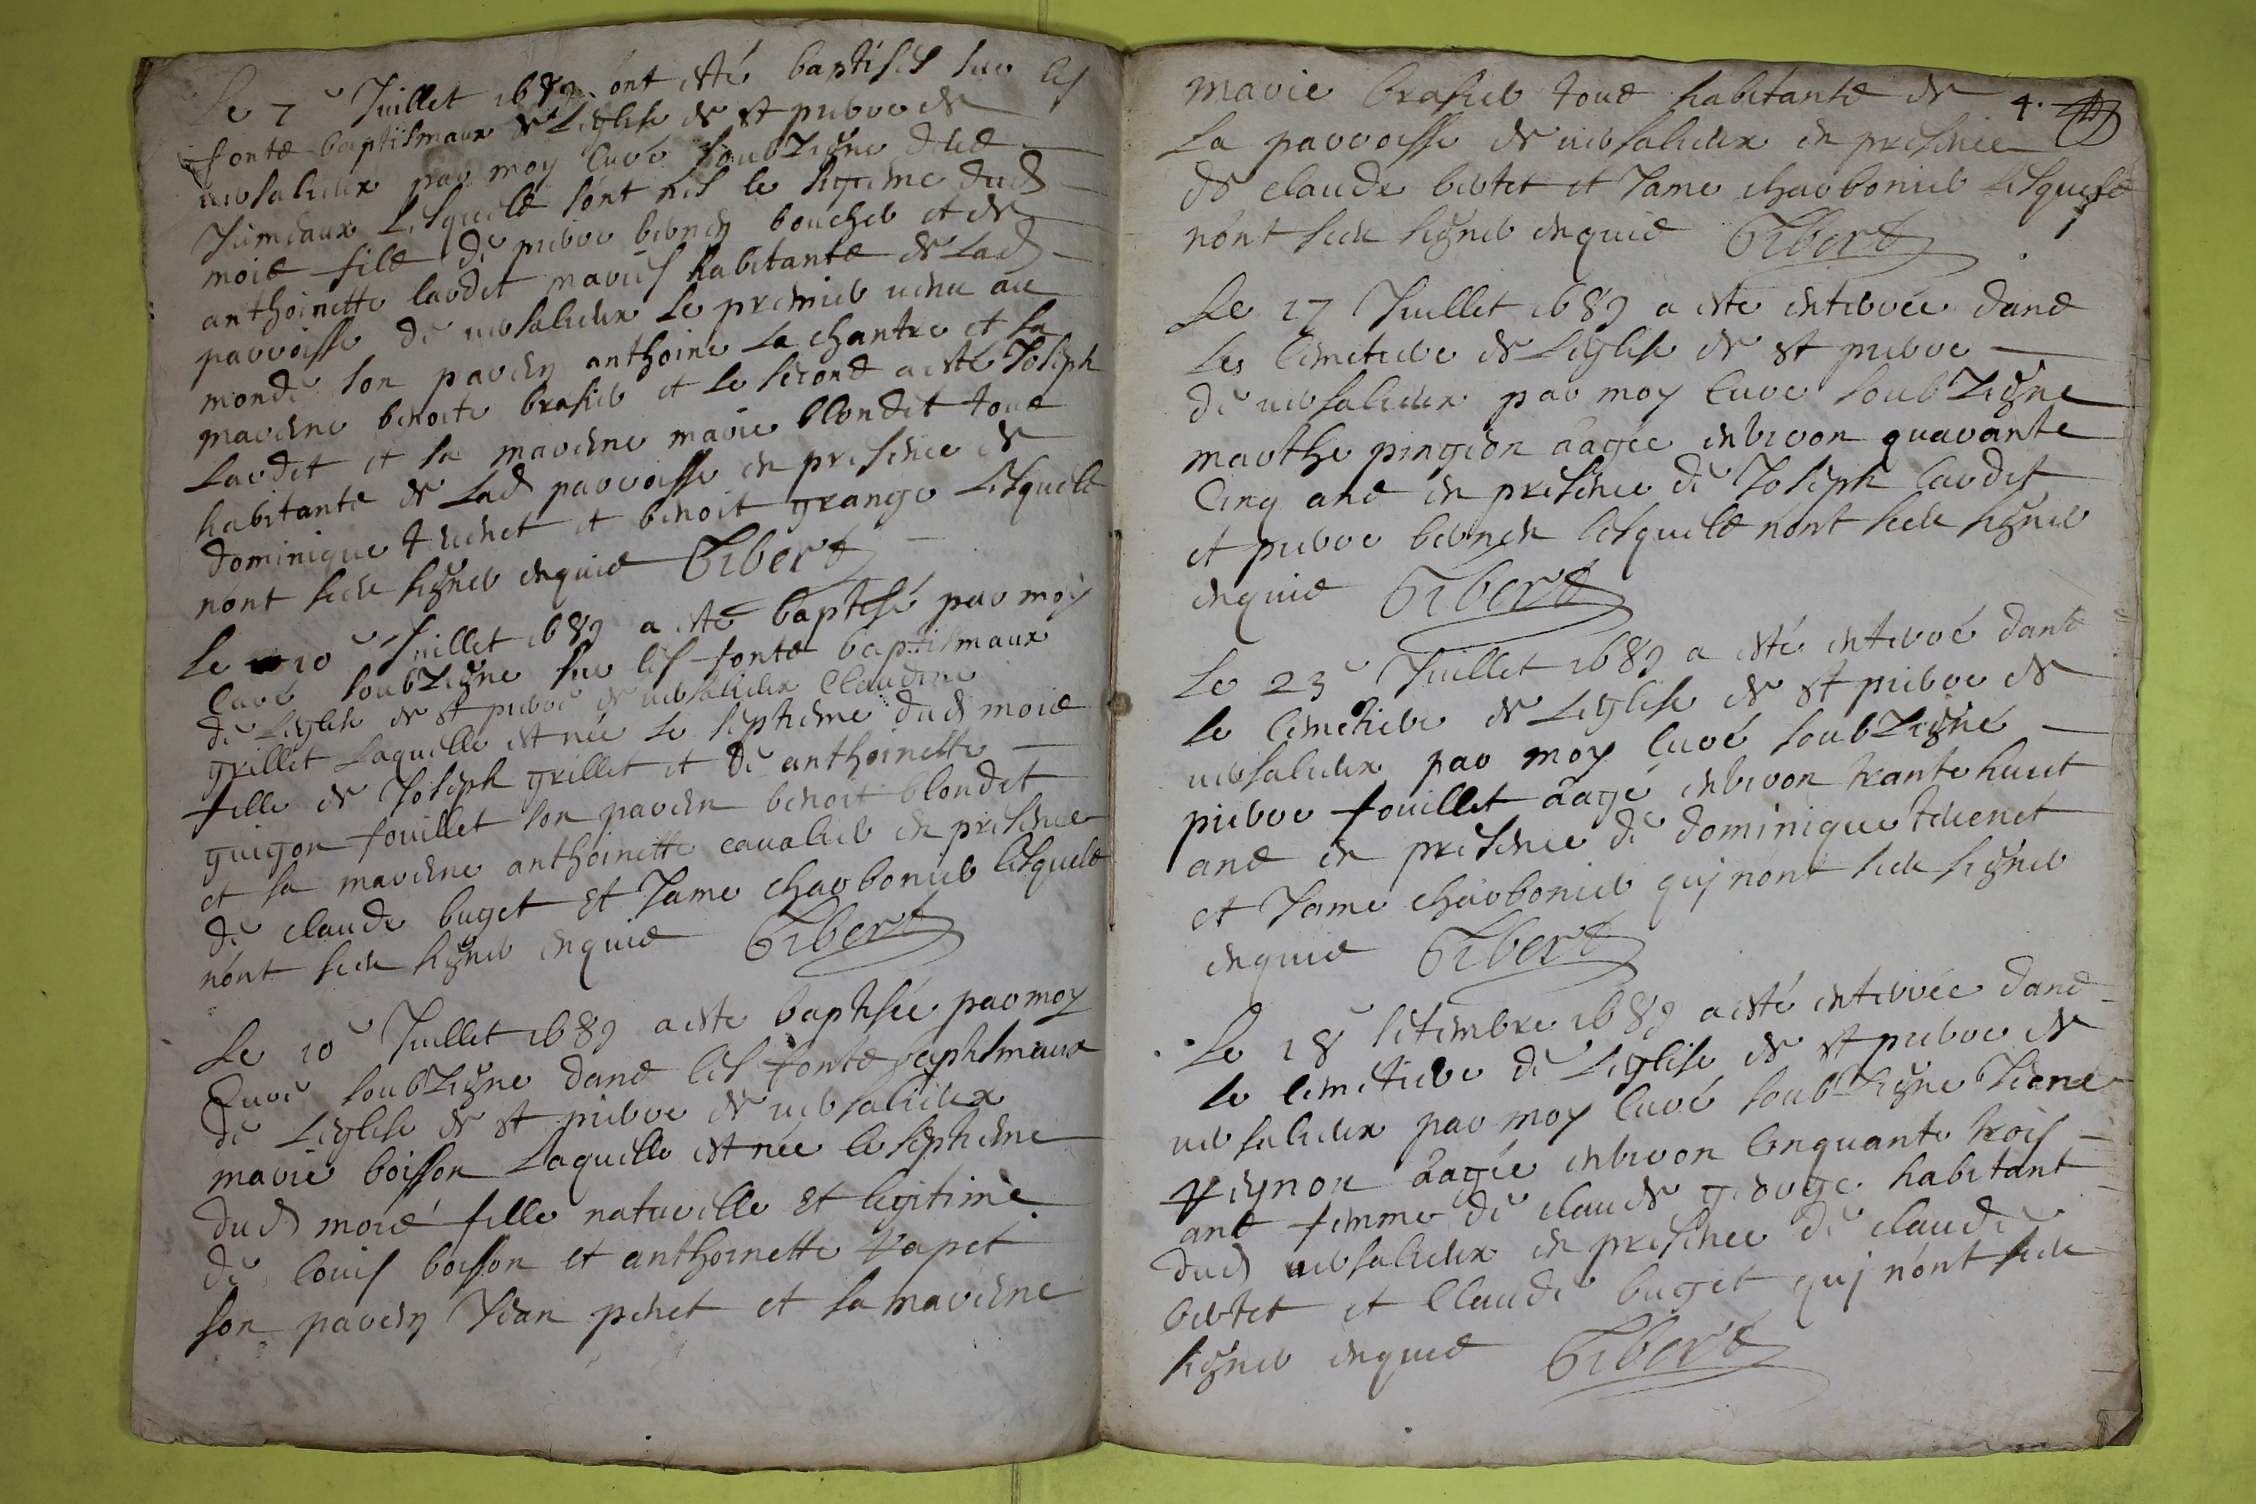 Le 7e Juillet 1689 ont esté baptisés sur les
fonts baptismaux de Leglise de st pierre de
versalieux par moy Curé soubzigne deux
Jumeaux Lesquels sont nés le septieme dud
mois fils de pierre bernen boucher et de
anthoinette lardet mariés habitants de Lad
parroisse de versalieux Le premier venu au
monde son parein anthoine La chantre et sa
mareine benoite brasier et le second a esté Joseph
Lardet et sa mareine marie blondet tous
habitants de Lad parroisse en presence de
dominique trienet et benoit grange Lesquels
nont sceu signer enquis Gibert
Le 10e Juillet 1689 a esté baptisé par moy
Curé soubzigne sur les fonts baptismaux
de Leglise de st pierre de versalieux Claudine
grillet Laquelle est née Le septieme dud mois
fille de Joseph grillet et de anthoinette
guigon fouillet son parein benoit blondet
et sa mareine anthoinette cavalier en presence
de claude buget Et Jame charbonier lesquels
nont sceu signer enquis Gibert
Le 10e Juillet 1689 a esté baptisée par moy
Curé soubzigne dans les fonts baptismaux
de Leglise de st pierre de versalieux
marie boisson Laquelle est née le septieme
dud mois fille naturelle Et legitime
de Louis boisson et anthoinette vapet
son parein Jean penet et sa mareine
4.
marie brasier tous habitants de
La parroisse de versalieux en presence
de claude bertet et Jame charbonier Lesquels
nont sceu signer enquis Gibert
Le 17 Juillet 1689 a esté enterrée dans
Les Cimetiere de Leglise de st pierre
de versalieux par moy Cure soubzigne
marthe pingeon aagée environ quarante
Cinq ans en presence de Joseph Lardet
et pierre bernen lesquels nont sceu signer
enquis Gibert
Le 23e Juillet 1689 a esté enterré dans
le Cimetiere de Leglise de st pierre de
versalieux par moy Curé soubzigné
pierre fouillet aagé environ trante huict
ans en presence de dominique trienet
et Jame charbonier quj nont sceu signer
enquis Gibert
Le 18e setembre 1689 a esté enterrée dans
le cimetiere de Leglise de st pierre de
versalieux par moy Curé soubzigne Jeane
veynon aagée environ Cinquante trois
ans femme de claude george habitant
dud versalieux en presence de claude
bertet et Claude buget quj nont sceu
signer enquis Gibert